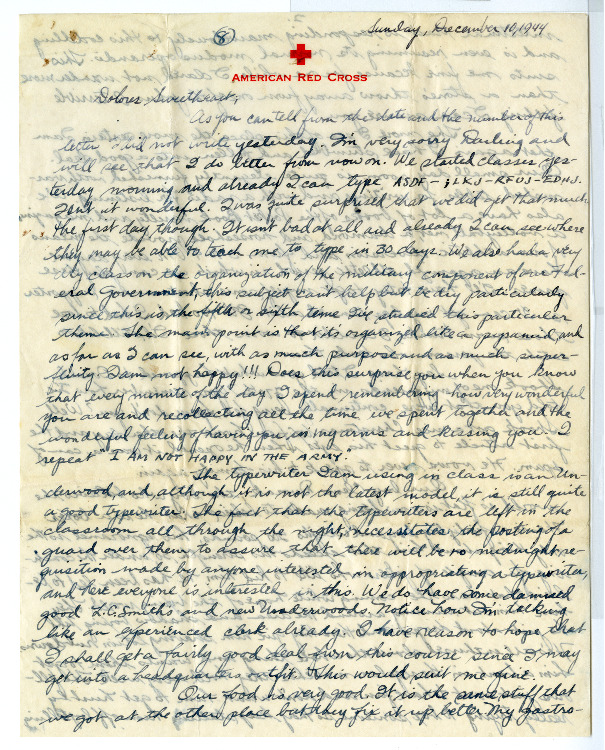 (8)
Sunday, December 10, 1944
AMERICAN RED CROSS
Dolores, Sweetheart,
As you can tell from the date and the number of this
letter I did not write yesterday. I'm very sorry Darling and
will see that I do better from now on. We started classes yes-
terday morning and already I can type ASDF - ;LKJ - RFUJ - EDHJ.
Isn't it wonderful. I was quite surprised that we did get that much
the first day though. It isn't bad at all and already I can see where
they may be able to teach me to type in 30 days. We also had a very
dry class on the organization of the military component of our Fed-
eral Government, this subject can't help but be dry particularly
since this is the fifth or sixth time I've studied this particular
theme. The main point is that it's organized like a pyramid, and
as far as I can see, with as much purpose and as much super-
fluity. I am not happy!!! Does this surprise you when you know
that every minute of the day I spend remembering how very wonderful
you are and recollecting all the time we spent together and the
wonderful feeling of having you in my arms and kissing you. I
repeat "I AM NOT HAPPY IN THE ARMY.
The typewriter I am using in class is an Un-
derwood, and although it is not the latest model, it is still quite
a good typewriter. The fact that the typewriters are left in the
classroom all through the night, necessitates the posting of a
guard over them to assure that there will be no midnight re-
quisition made by anyone interested in appropriating a typewriter,
and here everyone is interested in this. We do have some damned
good L.C. Smiths and new Underwoods. Notice how I'm talking
like an experienced clerk already. I have reason to hope that
I shall get a fairly good deal from this course since I may
get into a headquarters outfit. This would suit me fine.
Our food is very good. It is the same stuff that
we got at the other place but they fix it up better. My gastro-